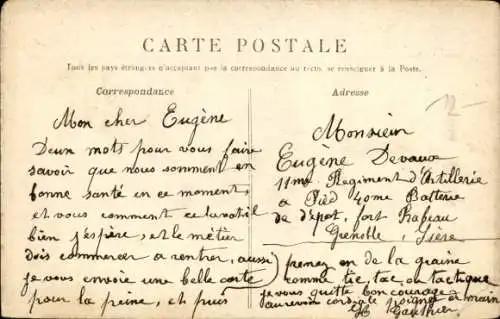 CARTE POSTALE
Tous les pays étrangers n'acceptant pas la correspondance au recto, se renseigner à la Poste.
Correspondance
Mon cher Eugène
Deux mots pour vous faire
savoir que nous somment en
bonne santé en ce moment,
et vous comment
bien j'espère, et le métier
dois commercer a rentrer, aussi
je vous envoie une belle carte
pour la peine, et puis
Adresse
12
Monsieur
Eugène Devaux
11me Regiment d'Artillerie
a Pied 40me Batterie
de dépot, fort Rabeau
Grenoble, Isère
prenez en de la graine
comme tic, tac, ou tactique
je vous quitte bon courage
au revoir cordiale poignée de main
Gauthier